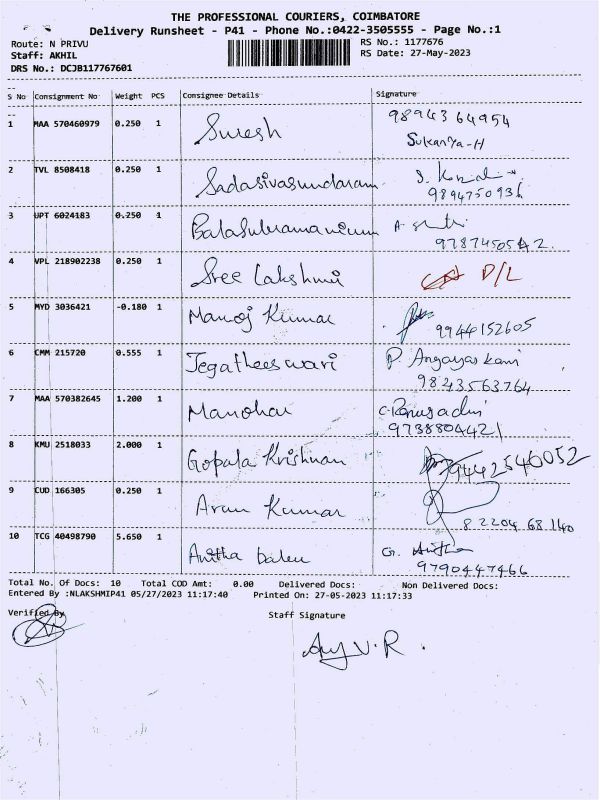 THE PROFESSIONAL COURIERS, COIMBATORE
Delivery Runsheet - P41 - Phone No.:0422-3505555 - Page No.:1
Route: N PRIVU RS No.: 1177676
Staff: AKHIL RS Date: 27-May-2023
DRS No.: DCJB117767601
S No Consignment No Weight PCS Consignee Details Signature
1 MAA 570460979 0.250 1 Suresh 9894364954
Sukanya-H
2 TVL 8508418 0.250 1 Sadasivasundaram
9894750936
3 UPT 6024183 0.250 1 Balasubramanium
9787450542.
4 VPL 218902238 0.250 1 Sree Lakshmi D/L
5 MYD 3036421 -0.180 1 Manoj Kumar 9944152605
6 CMM 215720 0.555 1 Jegatheeswari P. Angayarkani
9843563764
7 MAA 570382645 1.200 1 Manohar
9738804421
8 KMU 2518033 2.000 1 Gopala Krishnan 9442546052
9 CUD 166305 0.250 1 Arun Kumar
8 2204 68 140
10 TCG 40498790 5.650 1 Anitha balu G. Anitha
9790447466
Total No. Of Docs: 10 Total COD Amt: 0.00 Delivered Docs: Non Delivered Docs:
Entered By :NLAKSHMIP41 05/27/2023 11:17:40 Printed On: 27-05-2023 11:17:33
Verified By Staff Signature
V.R.